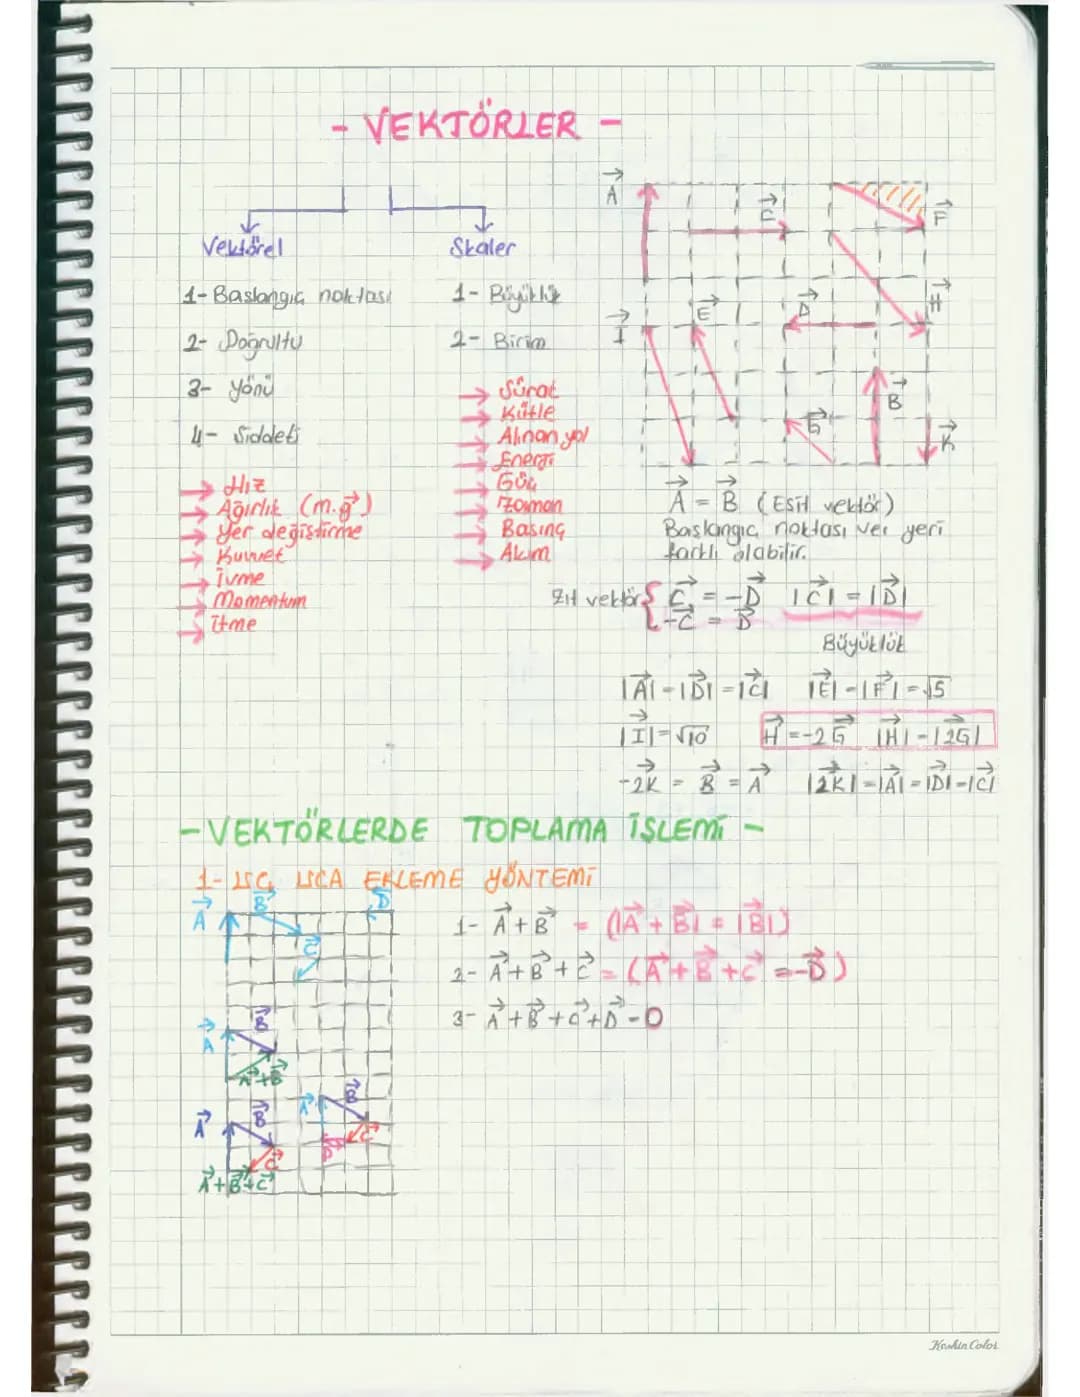 - VEKTÖRLER -
Vektörel
Skaler
1- Baslangıç noktası
2- Doğrultu
3- yönü
4- Şiddeti
→ Hız
→ Ağırlık (m.g⃗)
→ Yer değiştirme
→ Kuvvet
→ İvme
→ Momentum
→ İtme
1- Büyüklük
2- Birim
→ Sürat
→ Kütle
→ Alınan yol
→ Enerji
→ Güç
→ Zaman
→ Basınç
→ Akım
A⃗
C⃗
F⃗
H⃗
E⃗
D⃗
I⃗
B⃗
G⃗
K⃗
A⃗ = B⃗ (Eşit vektör)
Baslangıç noktası ver yeri
farklı olabilir.
Zıt vektör { C⃗ = -D⃗ |C⃗| = |D⃗|
-C⃗ = D⃗
Büyüklük
|A⃗| = |D⃗| = |C⃗| |E⃗| = |F⃗| = √5
|I⃗| = √10 H⃗ = -2G⃗ |H⃗| = |2G⃗|
-2K⃗ = B⃗ = A⃗ |2K⃗| = |A⃗| = |D⃗| = |C⃗|
-VEKTÖRLERDE TOPLAMA İŞLEMİ -
1- UÇ UCA EKLEME YÖNTEMİ
A⃗ B⃗ D⃗
C⃗
1- A⃗ + B⃗ = (|A⃗ + B⃗| = |B⃗|)
2- A⃗ + B⃗ + C⃗ = (A⃗ + B⃗ + C⃗ = -D⃗)
3- A⃗ + B⃗ + C⃗ + D⃗ = 0
A⃗ B⃗
A⃗+B⃗
A⃗ B⃗
C⃗
A⃗+B⃗+C⃗
A⃗ B⃗
C⃗
D⃗
Keskin Color